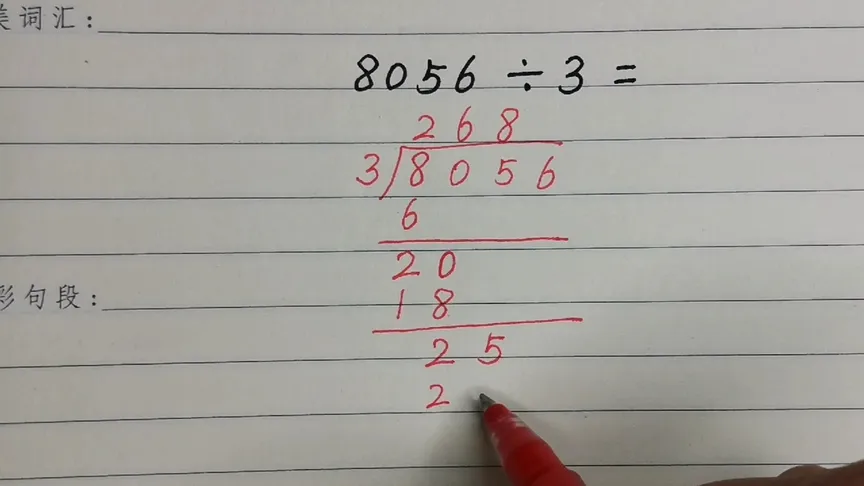 美词汇:
8056÷3=
268
3/8056
6
20
彩句段:
18
25
2